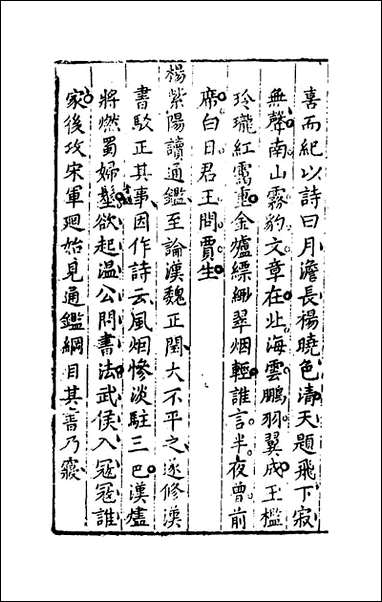 喜而紀以詩曰月澹長楊曉色清天題飛下寂
無聲南山霧豹文章在北海雲鵬羽翼成玉檻
玲瓏紅露重金爐縹緲翠烟輕誰言半夜曾前
席白日君王問賈生
楊紫陽讀通鑑至論漢魏正閏大不平之遂修漢
書駁正其事因作詩云風烟慘淡駐三巴漢燼
將燃蜀婦髽欲起溫公問書法武侯入冦冦誰
家後攻宋軍廻始見通鑑綱目其書乃寢